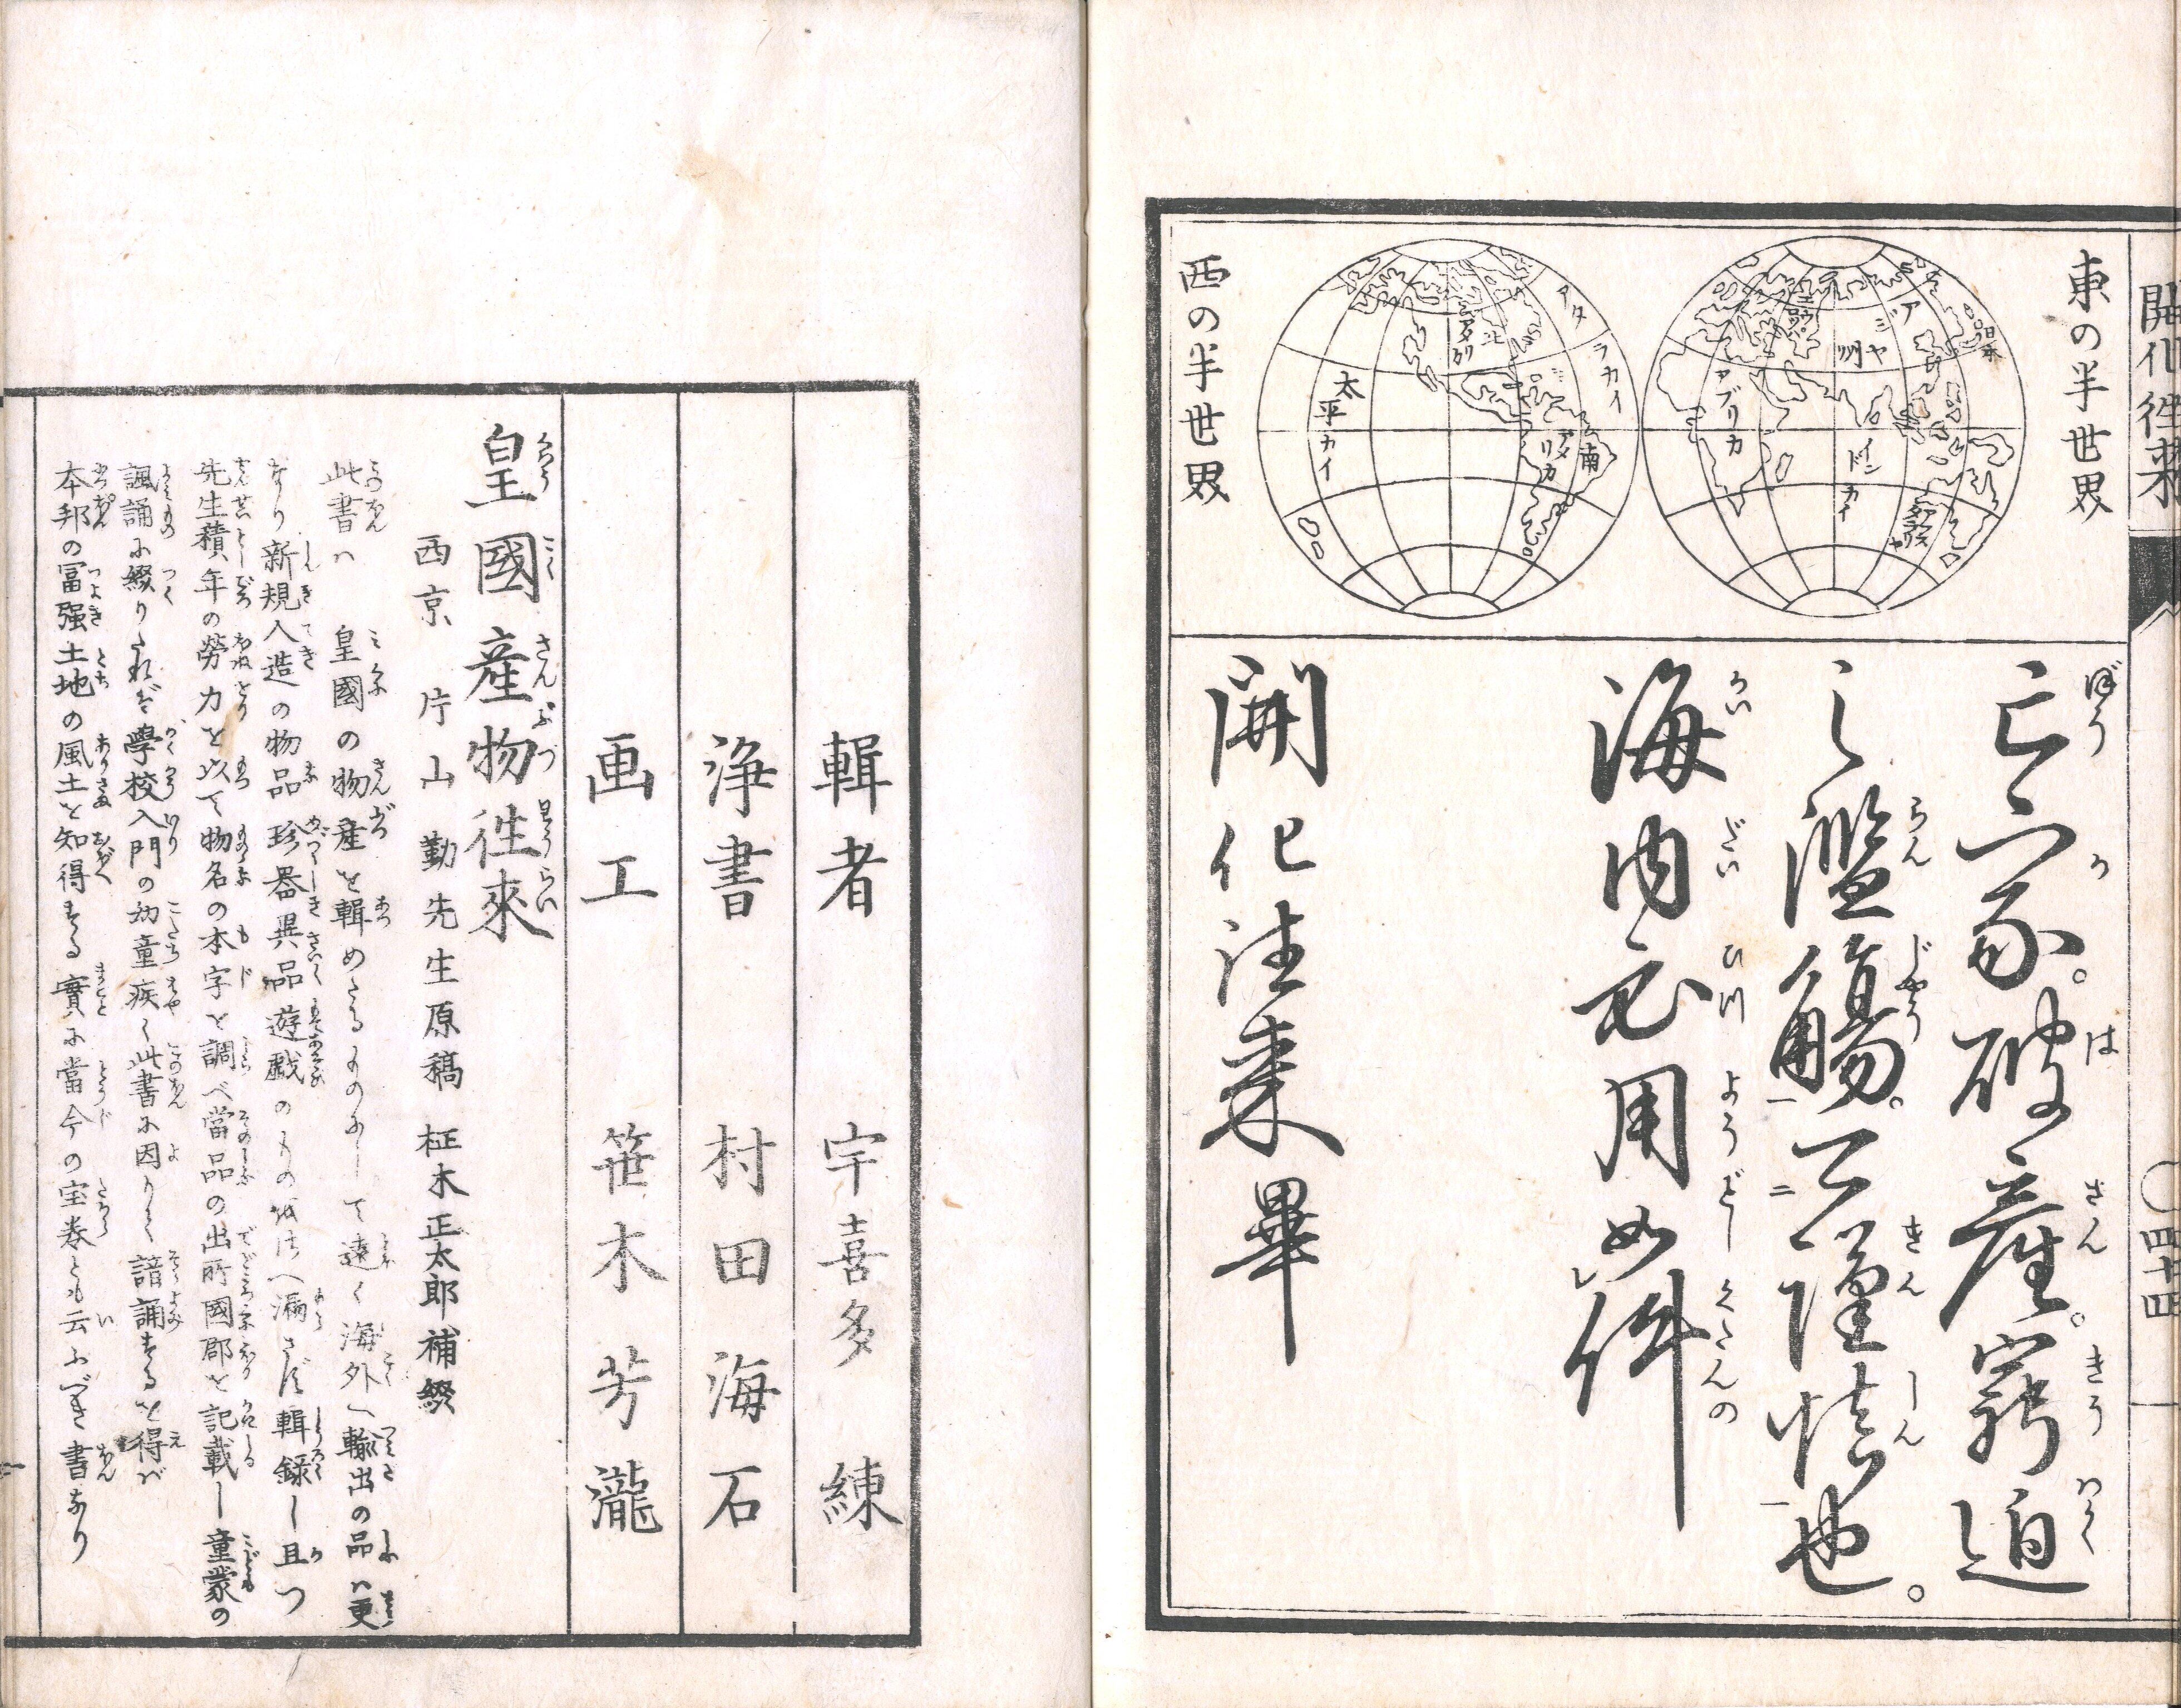 開化徃来
〇四十四
東の半世界
日本
アジヤ州
エウロツパ
アフリカ
インドカイ
西の半世界
アタラカイ
北アメリカ
南アメリカ
太平カイ
亡家。破産。窮迫
之濫觴。可謹慎也。
海内必用如件
開化往来畢
輯者 宇喜多練
浄書 村田海石
画工 笹木芳瀧
皇國産物徃來
西京 片山勤先生原稿 柾木正太郎補綴
此書ハ 皇國の物産を輯めたるものにして遠く海外へ輸出の品ハ更
なり新規入造の物品珍器異品遊戯のもの迄洩さず輯録し且つ
先生積年の勞力を以て物名の本字を調べ當品の出所國郡を記載し童蒙の
諷誦に綴りたれバ學校入門の幼童疾く此書に因りて諳誦するを得バ
本邦の冨强土地の風土を知得する實に當今の宝巻とも云ふべき書なり